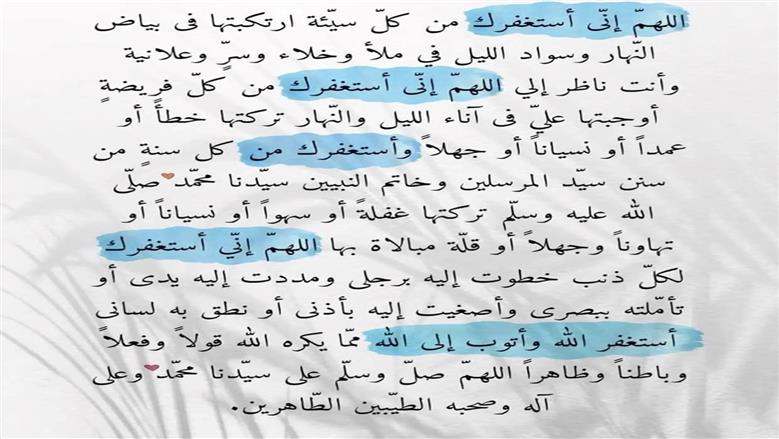 اللهمّ إنّى أستغفرك من كلّ سيّئة ارتكبتها فى بياض
النّهار وسواد الليل في ملأ وخلاء وسرٍّ وعلانية
وأنت ناظر إلي اللهمّ إنّى أستغفرك من كلّ فريضةٍ
أوجبتها عليّ فى آناء الليل والنّهار تركتها خطأً أو
عمداً أو نسياناً أو جهلاً وأستغفرك من كل سنةٍ من
سنن سيّد المرسلين وخاتم النبيين سيّدنا محمّد صلّى
الله عليه وسلّم تركتها غفلةً أو سهواً أو نسياناً أو
تهاوناً وجهلاً أو قلّة مبالاة بها اللهمّ إنّي أستغفرك
لكلّ ذنب خطوت إليه برجلى ومددت إليه يدى أو
تأمّلته ببصرى وأصغيت إليه بأذنى أو نطق به لسانى
أستغفر الله وأتوب إلى الله ممّا يكره الله قولاً وفعلاً
وباطناً وظاهراً اللهمّ صلّ وسلّم على سيّدنا محمّد وعلى
آله وصحبه الطيّبين الطّاهرين.